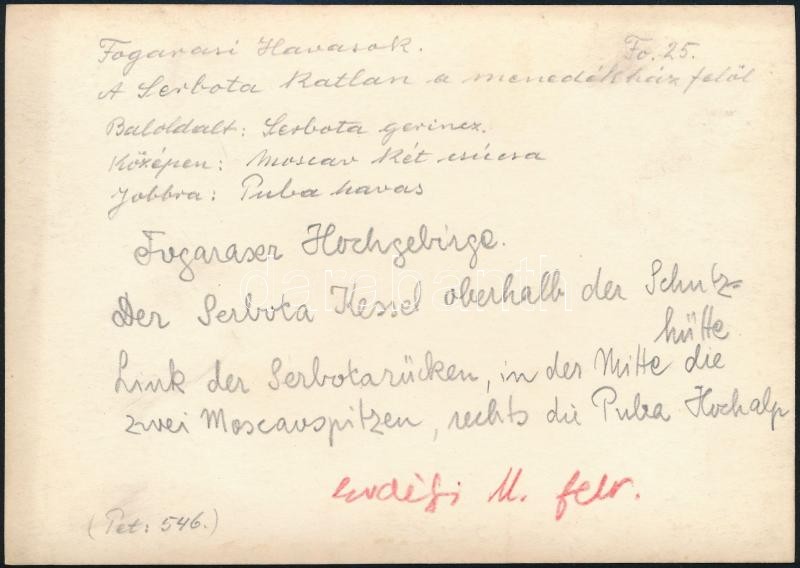 Fogarasi Havasok. Fo. 25.
A Serbota Katlan a menedékház felől
Baloldalt: Serbota gerincz.
Középen: Moscav két csúcsa
Jobbra: Puba havas
Fogaraser Hochgebirge.
Der Serbota Kessel oberhalb der Schutz-
hütte
Link der Serbotarücken, in der Mitte die
zwei Moscavspitzen, rechts die Puba Hochalp
Erdélyi M. felv.
(Pet: 546.)
darabanth